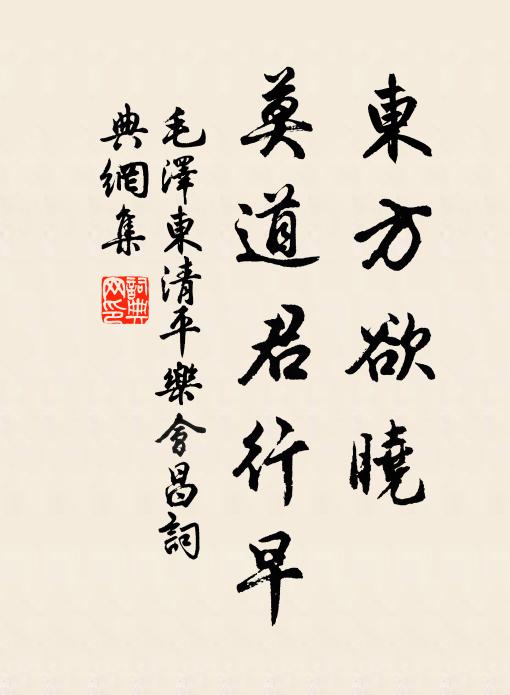 東方欲曉
莫道君行早
毛澤東清平樂會昌詞
典網集
詞典網印